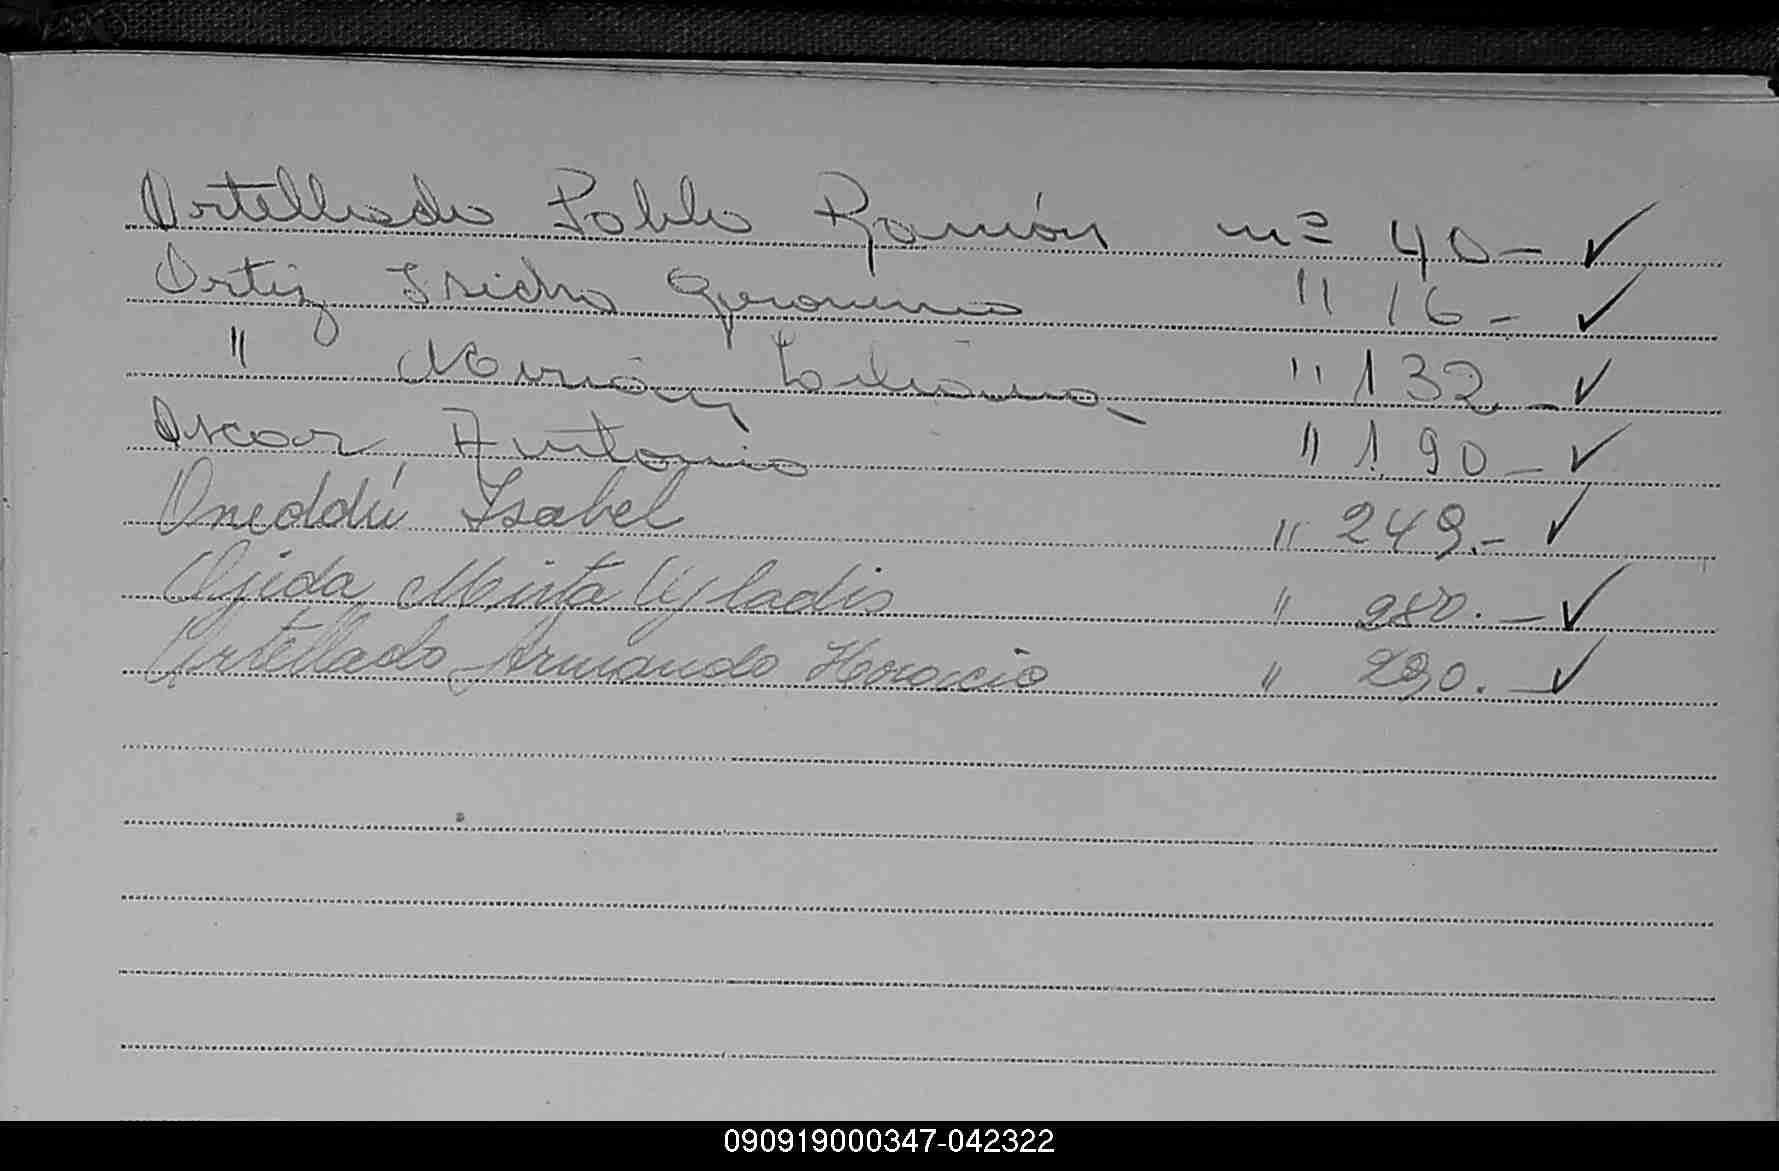 Ortellado Pablo Ramón nº 40 - ✓
Ortiz Isidro Geronimo " 16 - ✓
" María Liliana " 132 - ✓
Oscar Antonio " 190 - ✓
Oneddú Isabel " 249. - ✓
Ojida Mirta Gladis " 280. - ✓
Ortellado Armando Horacio " 290. - ✓
090919000347-042322